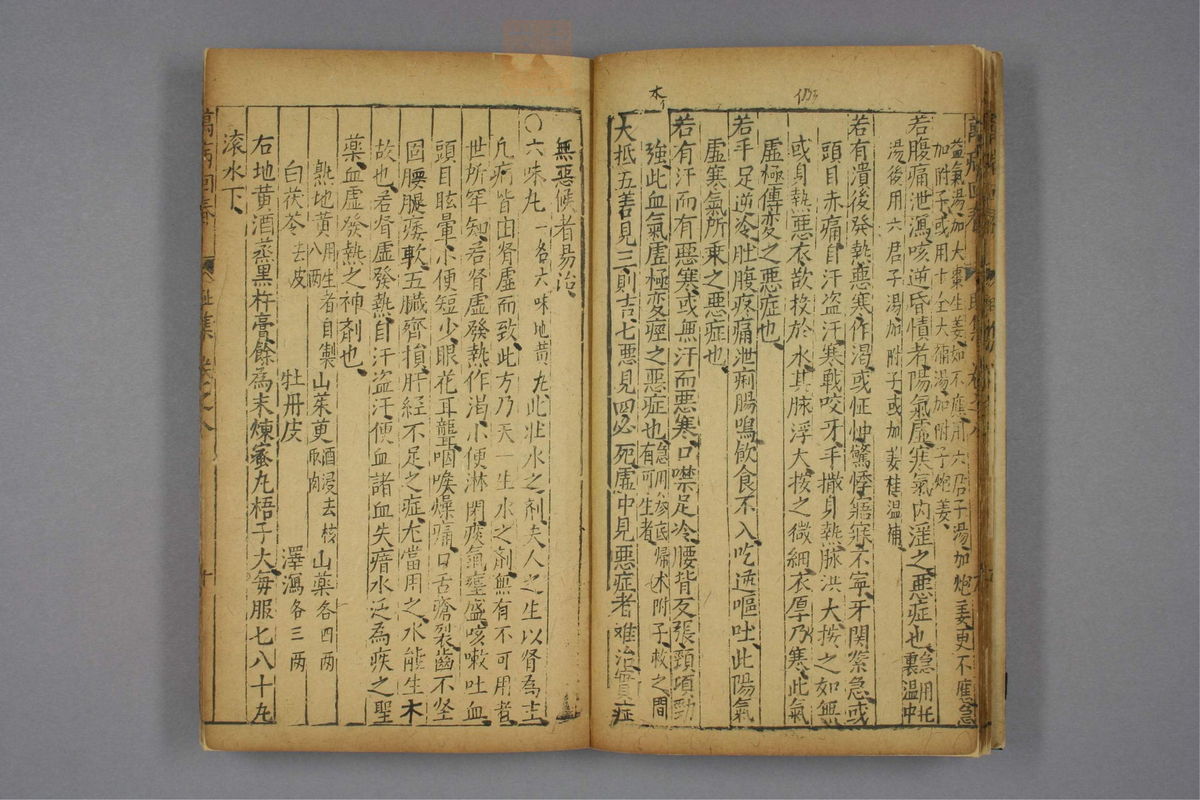 益氣湯加大棗生姜如不應用六君子湯加炮姜更不應急
加附子或用十全大補湯加附子炮姜
若腹痛泄瀉咳逆昏憒者陽氣虛寒氣內淫之惡症也急用托裏溫中
湯後用六君子湯加附子或加姜桂溫補
若有潰後發熱惡寒作渴或怔忡驚悸寤寐不寧牙関緊急或
頭目赤痛自汗盜汗寒戰咬牙手撒身熱脉洪大按之如無
或身熱惡衣欲投於水其脉浮大按之微細衣厚乃寒此氣
虛極傳変之惡症也
若手足逆冷肚腹疼痛泄痢腸鳴飲食不入吃逆嘔吐此陽氣
虛寒氣所乘之惡症也
若有汗而有惡寒或無汗而惡寒口噤足冷腰背反張頸項勁
強此血氣虛極変痙之惡症也急用參芪歸术附子救之間有可生者
大抵五善見三則吉七惡見四必死虛中見惡症者难治實症
無惡候者易治
○六味丸 一名六味地黄丸此壯水之剤夫人之生以肾為主
凢病皆由肾虛而致此方乃天一生水之剤無有不可用者
世所罕知若肾虛發熱作渴小便淋閉痰氣壅盛咳嗽吐血
頭目眩暈小便短少眼花耳聾咽喉燥痛口舌瘡裂齒不坚
固腰腿痿軟五臟齊損肝経不足之症尤當用之水能生木
故也若肾虛發熱自汗盜汗便血諸血失瘖水泛為痰之聖
藥血虛發熱之神剤也
熟地黄八兩用生者自製 山茱萸酒浸去核取肉 山藥各四两
白茯苓去皮 牡丹皮 澤瀉各三两
右地黄酒蒸黑杵膏餘為末煉蜜丸梧子大每服七八十丸
滾水下
萬病回春